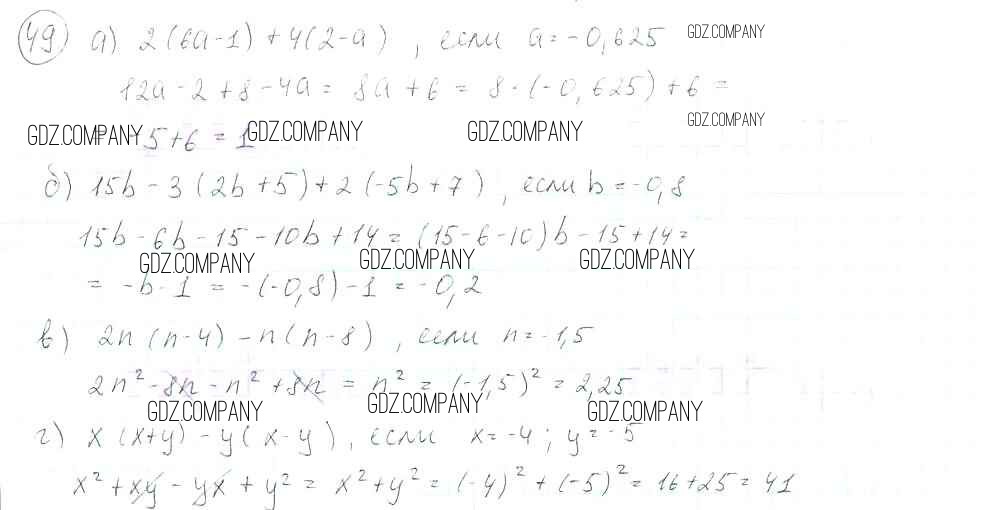 49) а) 2(6a-1)+4(2-a), если a=-0,625 GDZ.COMPANY
12a-2+8-4a = 8a+6 = 8·(-0,625)+6 =
GDZ.COMPANY -5+6 = 1 GDZ.COMPANY GDZ.COMPANY GDZ.COMPANY
б) 15b-3(2b+5)+2(-5b+7), если b=-0,8
15b-6b-15-10b+14 = (15-6-10)b-15+14 =
GDZ.COMPANY GDZ.COMPANY GDZ.COMPANY
= -b-1 = -(-0,8)-1 = -0,2
в) 2n(n-4)-n(n-8), если n=-1,5
2n²-8n-n²+8n = n² = (-1,5)² = 2,25
GDZ.COMPANY GDZ.COMPANY GDZ.COMPANY
г) x(x+y)-y(x-y), если x=-4; y=-5
x²+xy-yx+y² = x²+y² = (-4)²+(-5)² = 16+25 = 41